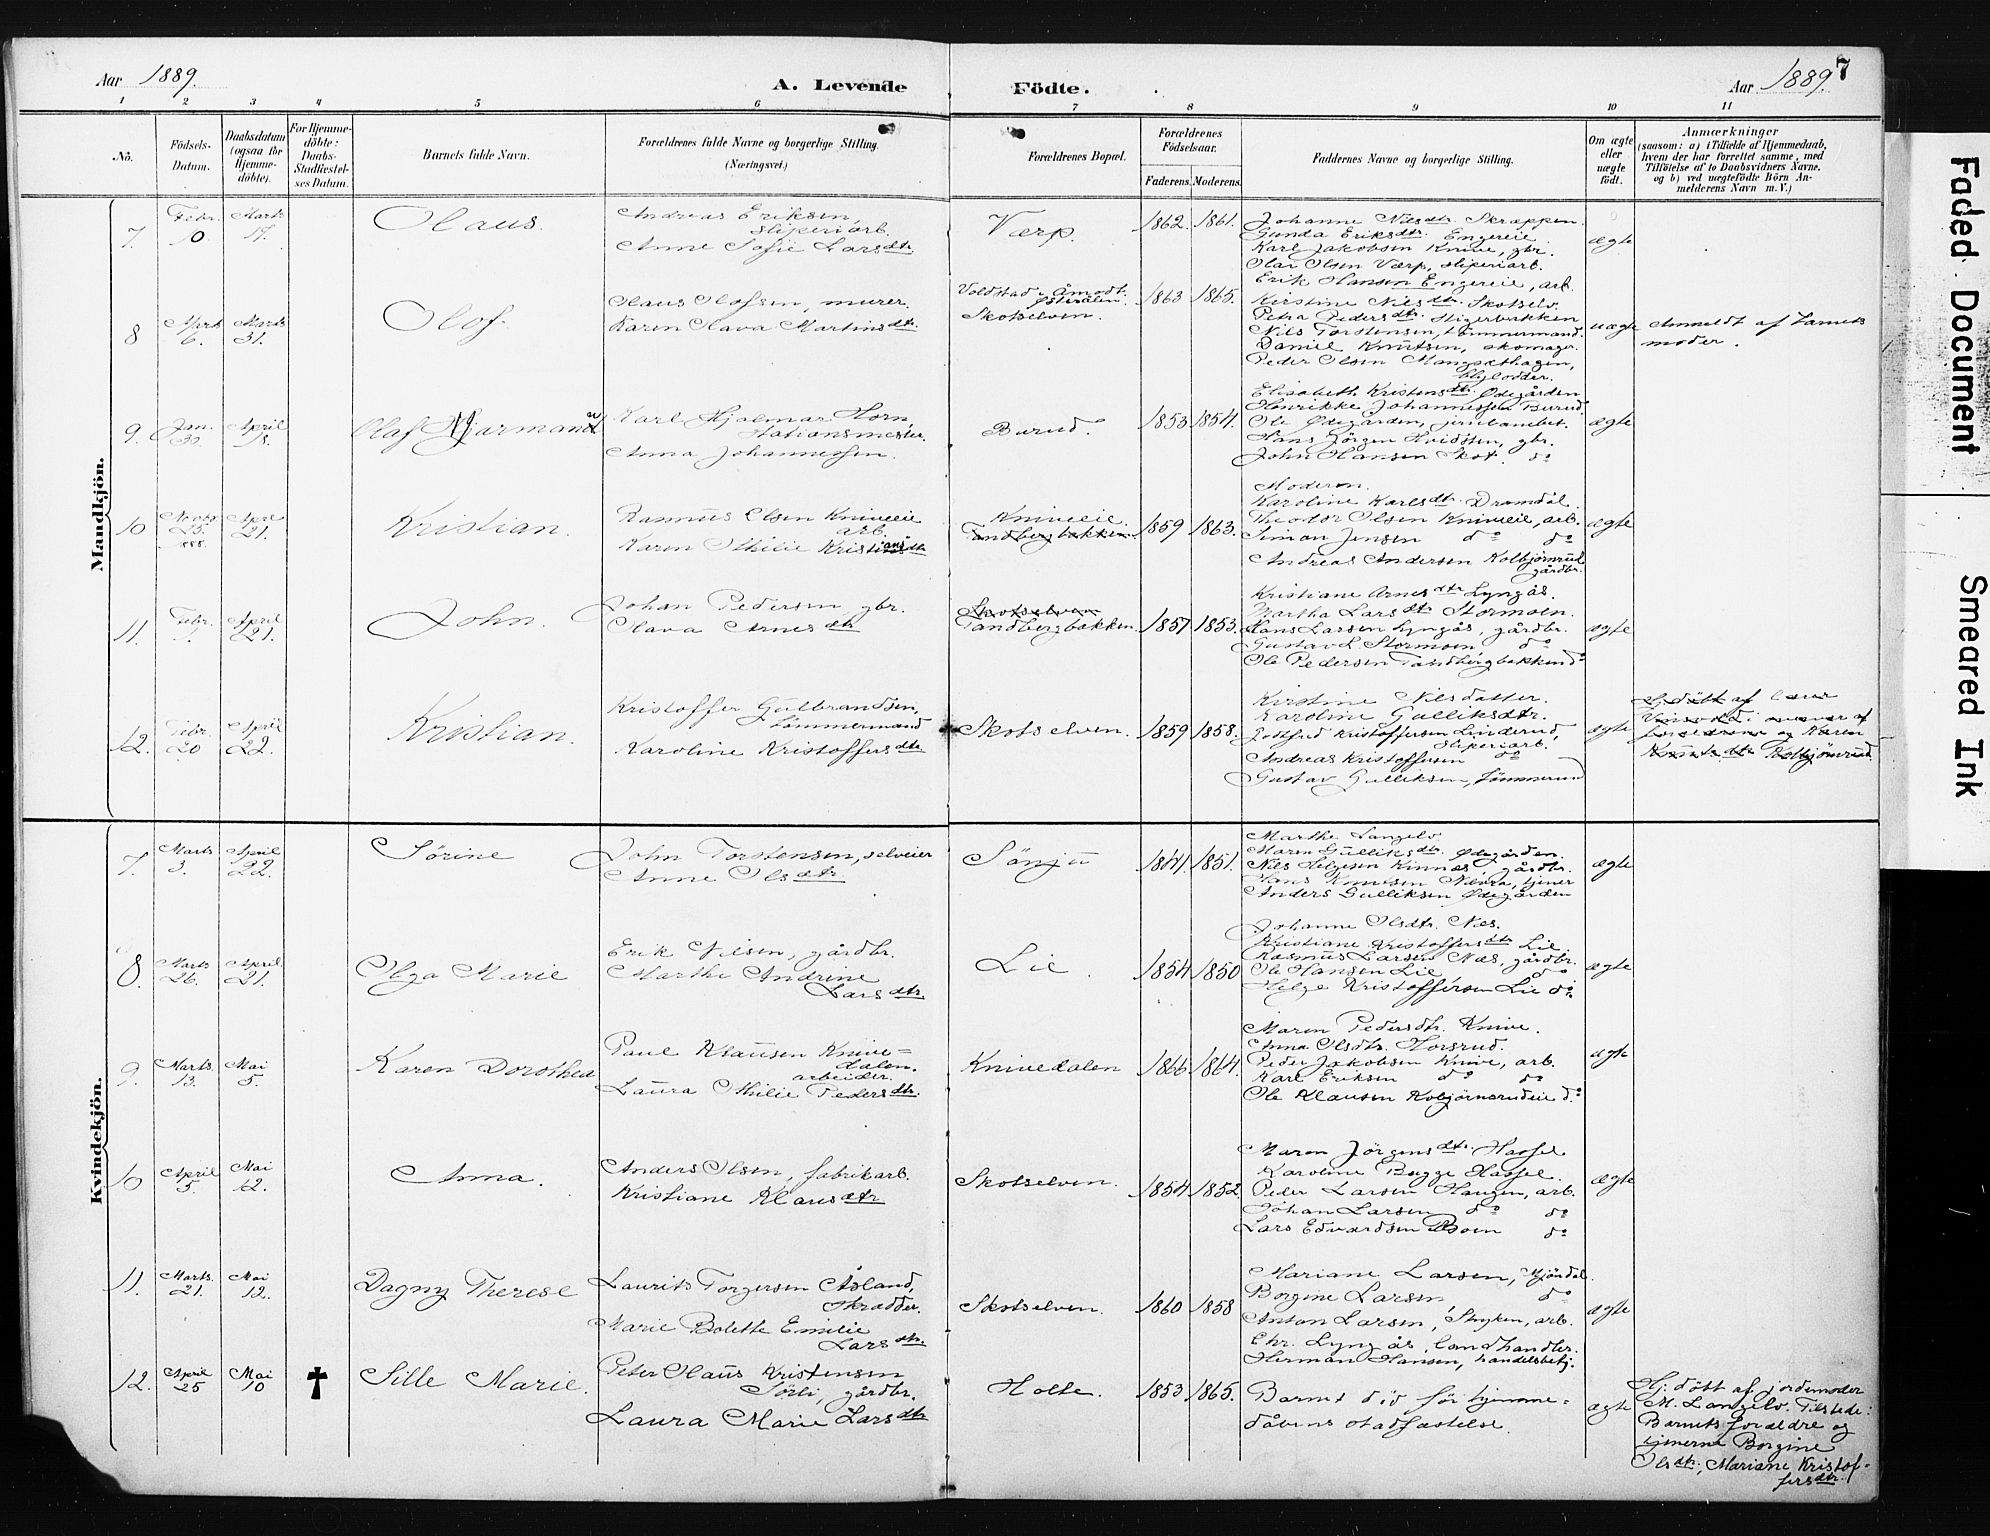 Aar 1889. A. Levende Födte. Aar 1889. 7
1 2 3 4 5 6 7 8 9 10 11
No. Födsels-Datum. Daabsdatum (ogsaa for Hjemme-döbte). For Hjemme-döbte: Daabs-Stadfæstel-ses Datum. Barnets fulde Navn. Forældrenes fulde Navne og borgerlige Stilling. (Næringsvei.) Forældrenes Bopæl. Forældrenes Födselsaar. Faderens. Moderens. Faddernes Navne og borgerlige Stilling. Om ægte eller uægte födt. Anmærkninger (saasom: a) i Tilfælde af Hjemmedaab, hvem der har forrettet samme, med Tilföielse af to Daabsvidners Navne. og b) ved uægtefödte Börn An-melderens Navn m. V.)
Mandkjön.
7. Febr. 10 Marts 17. Olaus. Andreas Eriksen, sliperiarb. Anne Sofie Larsdtr. Værp. 1862. 1861. ægte
Johanne Nilsdtr. Skrappen.
Gunda Eriksdtr. Engereie.
Karl Jakobsen Knive, gbr.
Olai Olsen Værp, sliperiarb.
Erik Hansen Engereie, arb.
8 Marts 6. Marts 31. Olof. Olaus Olofsen, murer. Karen Olava Martinsdtr. Voldstad, Åmodt. Skotselven. 1863 1865. uægte Anmeldt af barnets moder.
Kirstine Nilsdtr. Skotselv.
Petra Pedersdtr. Stigerbakken
Nils Torstensen, tømmermand.
Daniel Knutsen, skomager.
Peder Olsen Mangsethagen,
9. Jan. 30. April 18. Olaf Hjarmand Karl Hjalmar Horn, stationsmester. Anna Johannessen. Burud. 1853 1854. ægte
Elisabeth Kristensdtr. Ødegården
Henrikke Johannessen Burud.
Ole Ødegården, jernbanebet.
Hans Jörgen Hvidsten, gbr.
John Hansen Skot. do
10 Novbr. 25. 888. April 21. Kristian. Rasmus Olsen Kniveeie arb. Karen Othilie Kristiansdtr. Kniveeie. Tandbergbakken. 1859 1863. ægte
Moderen.
Karoline Karlsdtr. Dramdal.
Theodor Olsen Kniveeie, arb.
Simon Jensen do do
Andreas Andersen Kolbjørnrud gårdbr.
11. Febr. 1. April 21. John. Johan Pedersen, gbr. Olava Arnesdtr Skotselven Tandbergbakken. 1857 1853. ægte
Kristiane Arnesdtr Lyngås.
Martha Larsdtr Stormoen.
Hans Larsen Lyngås, gårdbr.
Gustav L. Stormoen do
Ole Pedersen Tandbergbakken do
12. Febr. 20 April 22. Kristian. Kristoffer Gulbrandsen, tömmermand Karoline Kristoffersdtr Skotselven. 1859 1858. ægte
Kirstine Nilsdatter.
Karoline Gulliksdtr.
Kristoffersen Linderud, sliperiarb.
Andreas Kristoffersen do
Gustav Gulliksen, tömmermd
Hj.döbt af
forældrene og Karen
Knutsdtr Kolbjörnrud
Kvindekjön.
7. Marts 3. April 22. Sörine John Torstensen, selveier Anne Olsdtr Sönju 1841. 1851. ægte
Marthe Langelv
Maren Gulliksdtr. Ødegården.
Nils Helgesen Kinnås, gårdbr.
Hans Knutsen Næura, tjener
Anders Gulliksen Ødegården
8. Marts 26. April 21. Olga Marie Erik Nilsen, gårdbr. Marthe Andrine Larsdtr. Lie. 1854 1850 ægte
Johanne Olsdtr. Næs.
Kristiane Kristoffersdtr Lie.
Rasmus Larsen Næs, gårdbr.
Ole Hansen Lie, do
Helge Kristoffersen Lie do
9. Marts 13. Mai 5. Karen Dorothea Paul Klausen Knive=dalen. arbeider. Laura Othilie Pedersdtr. Knivedalen 1866. 1864. ægte
Maren Pedersdtr. Knive.
Anna Olsdtr. Horsrud.
Peder Jakobsen Knive, arb.
Karl Eriksen do do
Ole Klausen Kolbjørnsrudeie do
10 April 5. Mai 12. Anna. Anders Olsen, fabrikarb. Kristiane Klausdtr Skotselven. 1854 1852 ægte
Maren Jörgensdtr. Hassel
Karoline Bugge Hassel.
Peder Larsen Haugen, arb.
Johan Larsen do do
Lars Edvardsen Moen do
11. Marts. 21. Mai 12. Dagny Therese Laurits Torgersen Åsland, skrædder. Marie Bolette Emilie Larsdtr. Skotselven. 1860 1858 ægte
Mariane Larsen, Mjöndal.
Borgine Larsen do
Anton Larsen, Stryken, arb.
Chr. Lyngås, landhandler.
Herman Hansen, handelsbetj.
12. April 25 Mai 10 ✝ Sille Marie. Peter Olaus Kristensen Sörli, gårdbr. Laura Marie Larsdtr Holte. 1853 1865. ægte
Barnet död för hjemme=
dåbens stadfæstelse.
Hj. döbt af jordemoder
M. Langelv. Tilstede:
Barnets forældre og
tjenerne Borgine
Olsdtr., Mariane Kristof-
fersdtr.
Faded Document
Smeared Ink